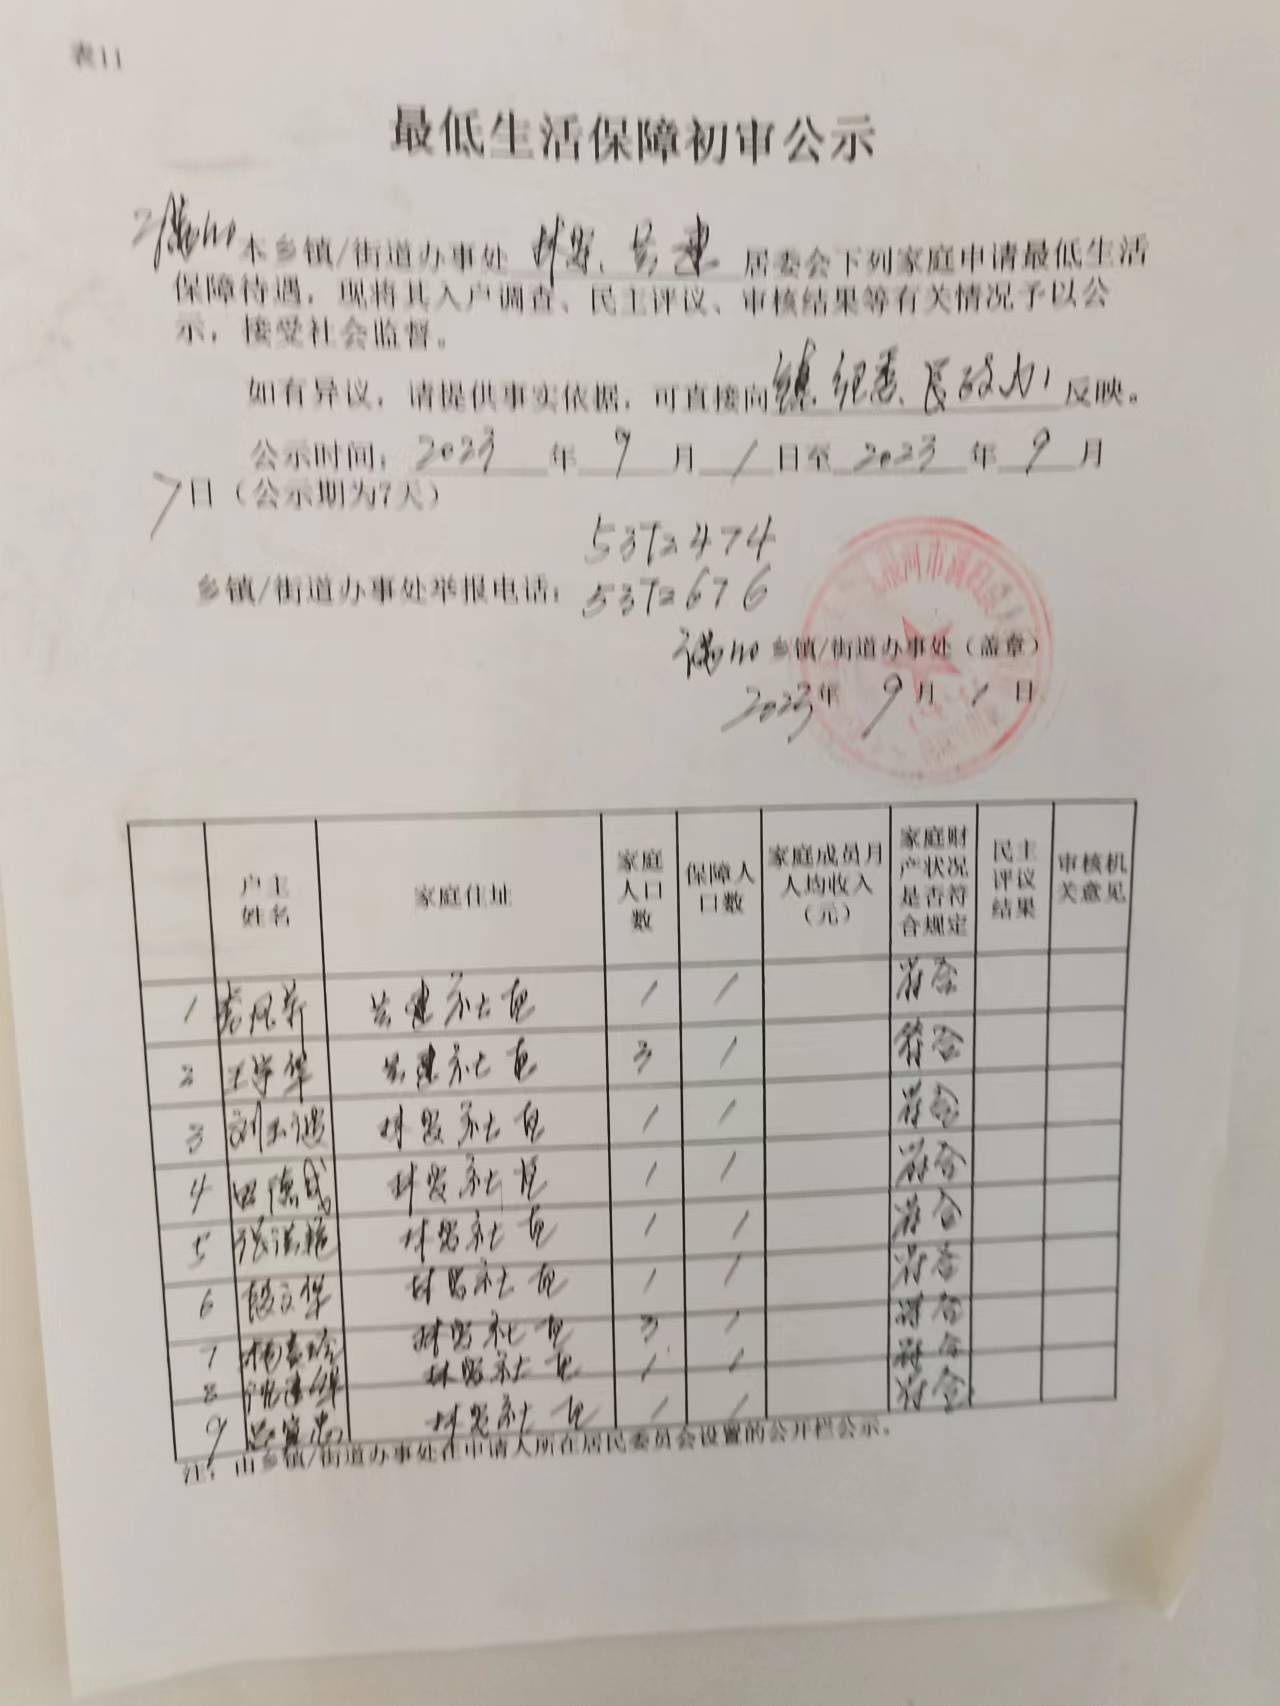 表11
最低生活保障初审公示
本乡镇/街道办事处 林发、共建 居委会下列家庭申请最低生活
保障待遇,现将其入户调查、民主评议、审核结果等有关情况予以公
示,接受社会监督。
如有异议,请提供事实依据,可直接向镇纪委、民政办反映。
公示时间:2023年9月1日至2023年9月
7日(公示期为7天)
5372474
乡镇/街道办事处举报电话:5372676
乡镇/街道办事处(盖章)
2023年9月1日
户主姓名 家庭住址 家庭人口数 保障人口数 家庭成员月人均收入(元) 家庭财产状况是否符合规定 民主评议结果 审核机关意见
1 共建社区 1 1 符合
2 王学华 共建社区 3 1 符合
3 林发社区 1 1 符合
4 林发社区 1 1 符合
5 林发社区 1 1 符合
6 段文华 林发社区 1 1 符合
7 林发社区 3 1 符合
8 林发社区 1 1 符合
9 林发社区 1 1 符合
注:由乡镇/街道办事处在申请人所在居民委员会设置的公开栏公示。